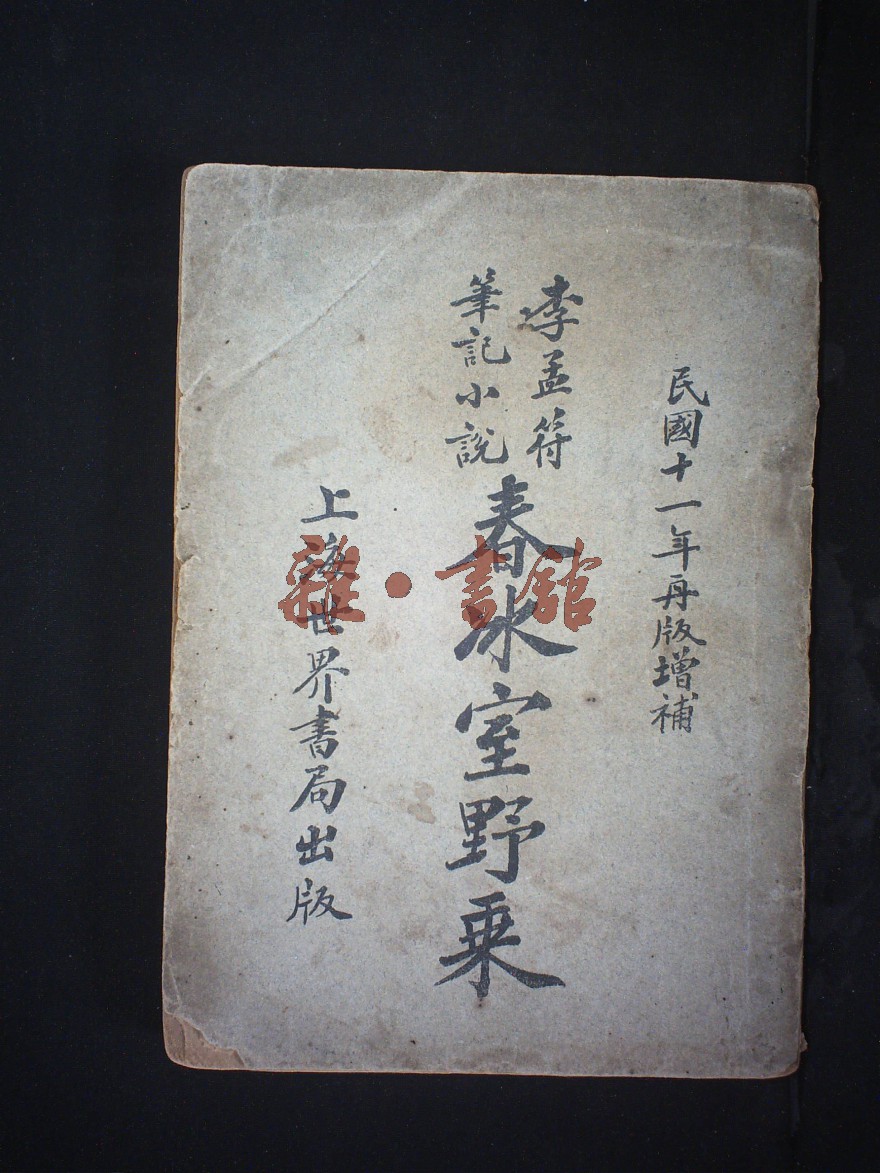 民國十一年再版增補
李孟符
筆記小說
春冰室野乘
上海世界書局出版
雜·書館